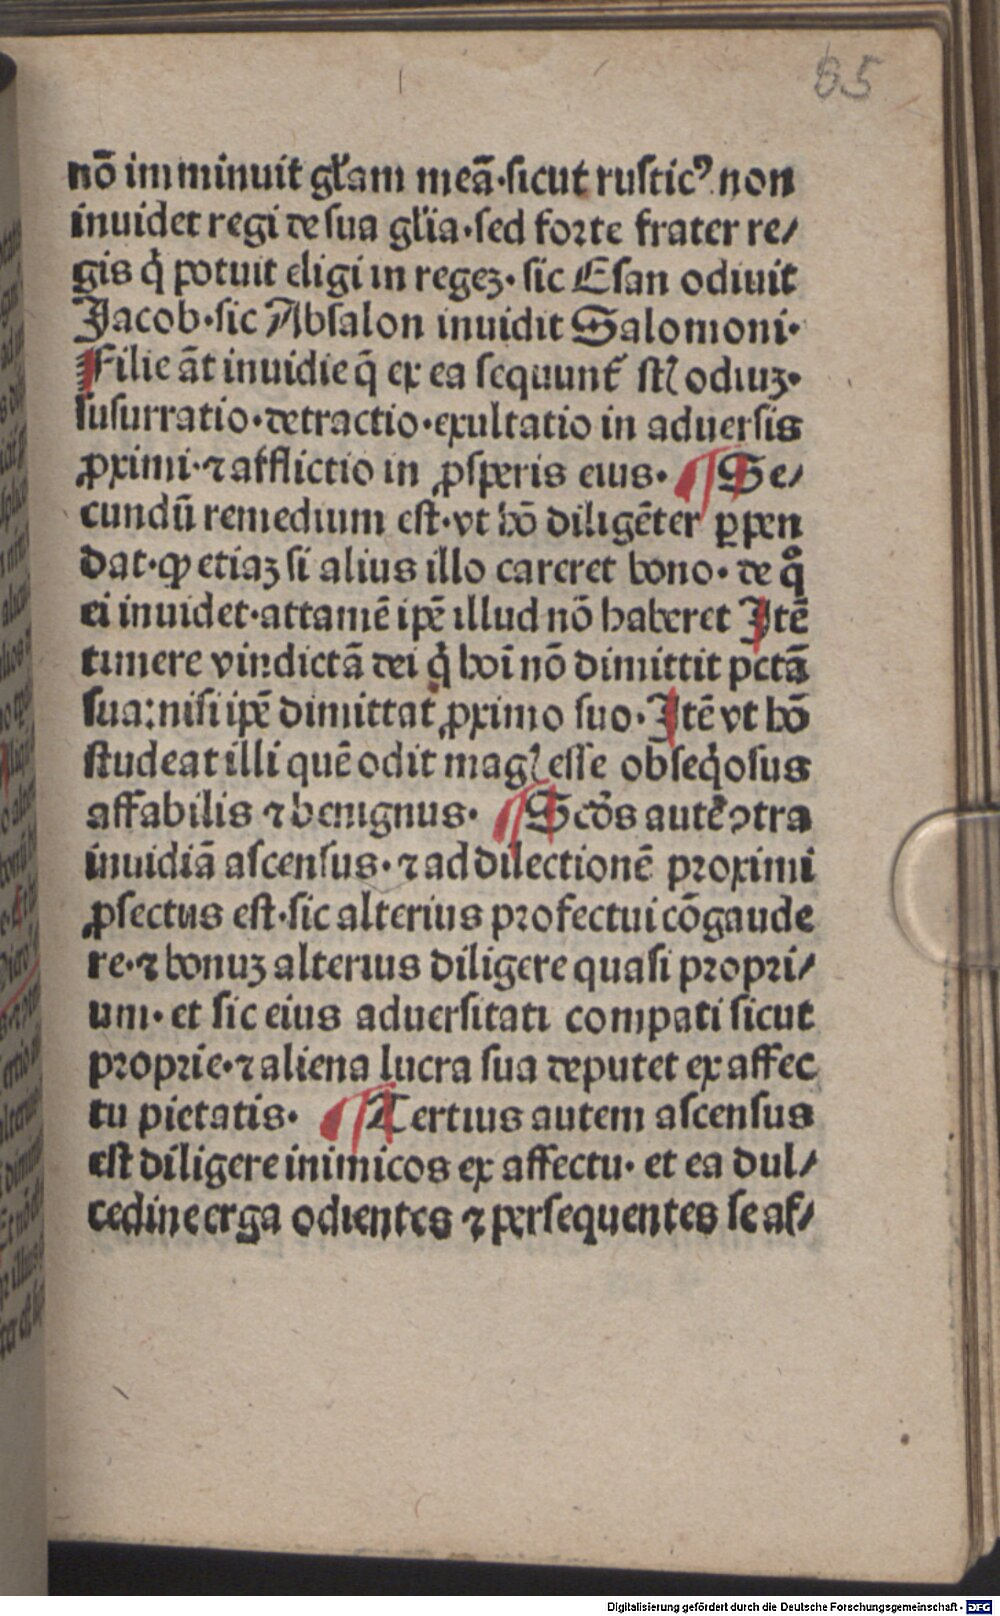 85
nō imminuit gl'am meā·sicut rusticꝰ non
inuidet regi de sua gl'ia·sed forte frater re/
gis q̇ potuit eligi in regeꝫ· sic Esan odiuit
Jacob·sic Absalon inuidit Salomoni·
Filie āt inuidie q̄ ex ea sequunt᷑ st̄l odiuꝫ·
susurratio·detractio·exultatio in aduersis
ꝓximi·⁊ afflictio in ꝓsperis eius· ¶ Se/
cundū remedium est·vt hō diligēter ꝑpen
dat·ꝙ etiaꝫ si alius illo careret bono· de qͦ
ei inuidet·attamē ipē illud nō haberet Itē
timere vindictā dei q̇ hoī nō dimittit pctā
sua:nisi ipē dimittat ꝓximo suo·Itē vt hō
studeat illi quē odit magꝭ esse obseq̇osus
affabilis ⁊ benignus· ¶ Scd̄s autē ↄtra
inuidiā ascensus·⁊ ad dilectionē proximi
ꝓfectus est·sic alterius profectui cōgaude
re·⁊ bonuꝫ alterius diligere quasi propri/
um· et sic eius aduersitati compati sicut
proprie·⁊ aliena lucra sua deputet ex affec
tu pietatis· ¶ Tertius autem ascensus
est diligere inimicos ex affectu· et ea dul/
cedine erga odientes ⁊ persequentes se af/
Digitalisierung gefördert durch die Deutsche Forschungsgemeinschaft · DFG